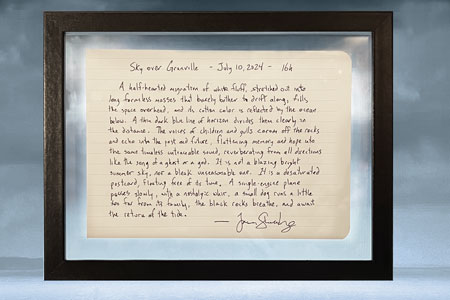 Sky over Granville - July 10, 2024 - 16h
A half-hearted migration of white fluff, stretched out into
long formless masses that barely bother to drift along, fills
the space overhead, and its cotton color is reflected by the ocean
below. A thin dark blue line of horizon divides them clearly in
the distance. The voices of children and gulls carom off the rocks
and echo into the past and future, flattening memory and hope into
the same timeless untraceable sound, reverberating from all directions
like the song of a ghost or a god. It is not a blazing bright
summer sky, nor a bleak unseasonable one. It is a desaturated
postcard, floating free of its time. A single-engine plane
passes slowly, with a nostalgic whir, a small dog runs a little
too far from its family, the black rocks breathe, and await
the return of the tide.